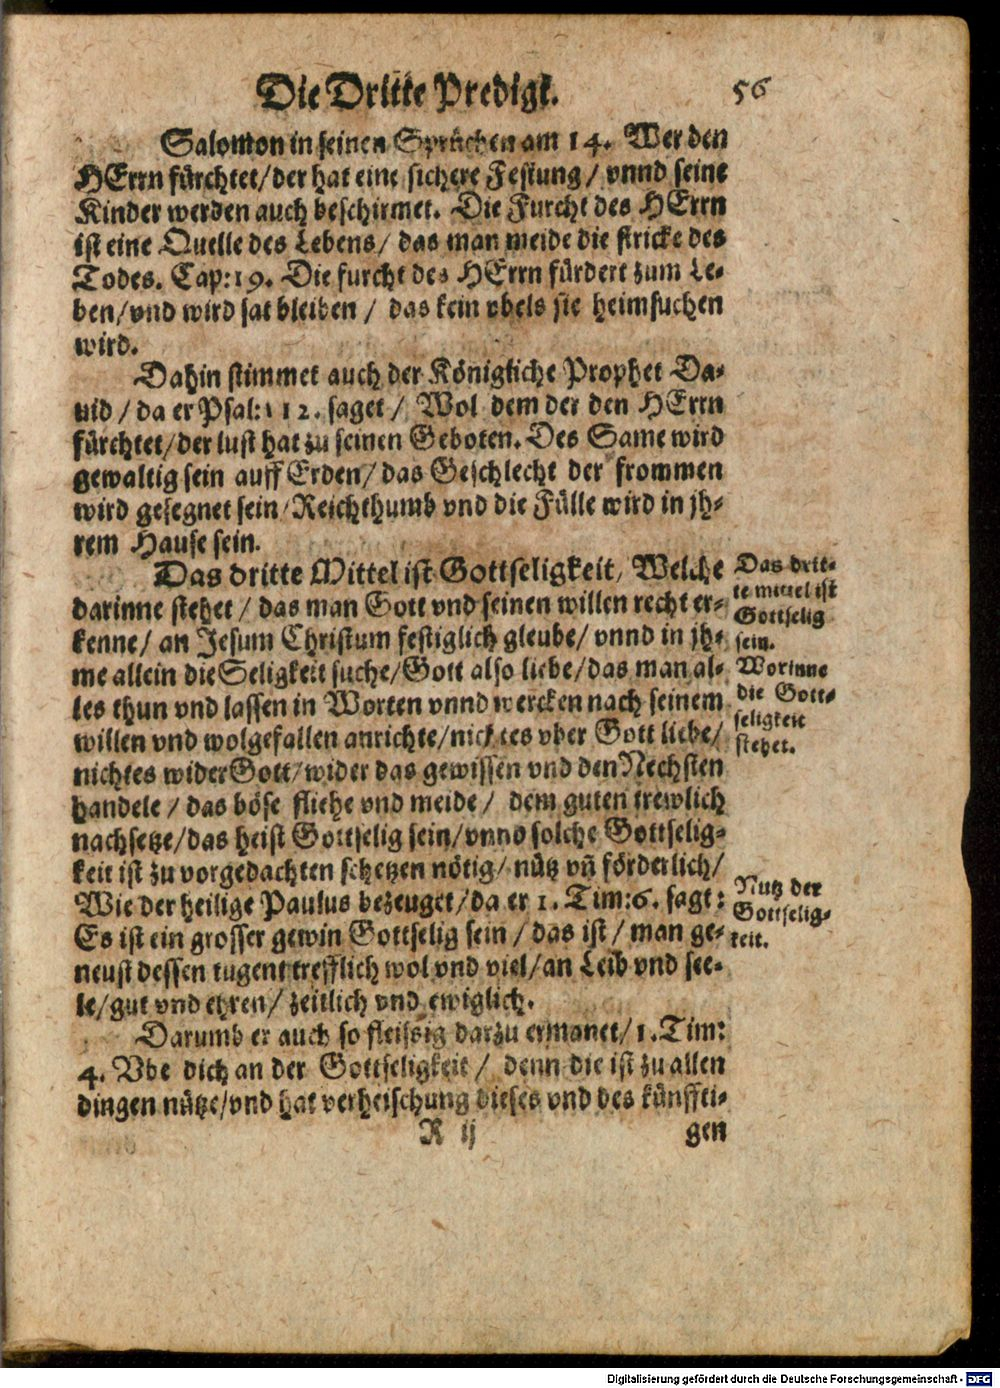 Die Dritte Predigt. 56
Salomon in seinen Sprüchen am 14. Wer den
HErrn fürchtet/der hat eine sichere Festung/ vnnd seine
Kinder werden auch beschirmet. Die Furcht des HErrn
ist eine Quelle des Lebens/ das man meide die stricke des
Todes. Cap: 19. Die furcht des HErrn fürdert zum Le-
ben/vnd wird sat bleiben / das kein vbels sie heimsuchen
wird.
Dahin stimmet auch der Königliche Prophet Da-
uid / da er Psal: 112. saget / Wol dem der den HErrn
fürchtet/der lust hat zu seinen Geboten. Des Same wird
gewaltig sein auff Erden/ das Geschlecht der frommen
wird gesegnet sein/Reichthumb vnd die Fülle wird in jh-
rem Hause sein.
Das dritte Mittel ist Gottseligkeit, Welche
darinne stehet / das man Gott vnd seinen willen recht er-
kenne/ an Jesum Christum festiglich gleube/ vnnd in jh-
me allein die Seligkeit suche/Gott also liebe/das man al-
les thun vnd lassen in Worten vnnd wercken nach seinem
willen vnd wolgefallen anrichte/nichtes vber Gott liebe/
nichtes wider Gott/wider das gewissen vnd den Nechsten
handele / das böse fliehe vnd meide / dem guten trewlich
nachsetze/das heist Gottselig sein/vnnd solche Gottselig-
keit ist zu vorgedachten schetzen nötig/ nütz vñ förderlich/
Wie der heilige Paulus bezeuget/da er 1. Tim:6. sagt:
Es ist ein grosser gewin Gottselig sein / das ist / man ge-
neust dessen tugent trefflich wol vnd viel/an Leib vnd see-
le/gut vnd ehren/ zeitlich vnd ewiglich.
Darumb er auch so fleissig darzu ermanet/ 1. Tim:
4. Vbe dich an der Gottseligkeit / denn die ist zu allen
dingen nütze/vnd hat verheischung dieses vnd des künffti-
R ij gen
Das drit-
te mittel ist
Gottselig
sein.
Worinne
die Gott-
seligkeit
stehet.
Nutz der
Gottselig-
keit.
Digitalisierung gefördert durch die Deutsche Forschungsgemeinschaft - DFG